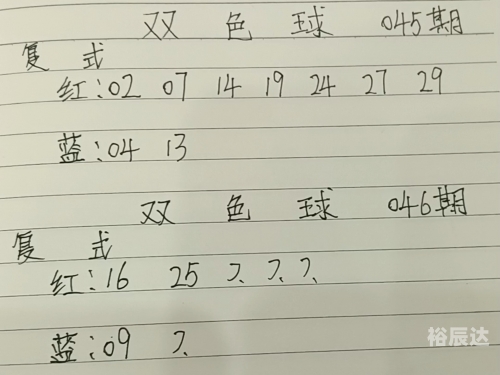 双 色 球 045期
复 式
红:02 07 14 19 24 27 29
蓝:04 13
双 色 球 046期
复 式
红:16 25 ?. ?. ?.
蓝:09 ?.
裕辰达